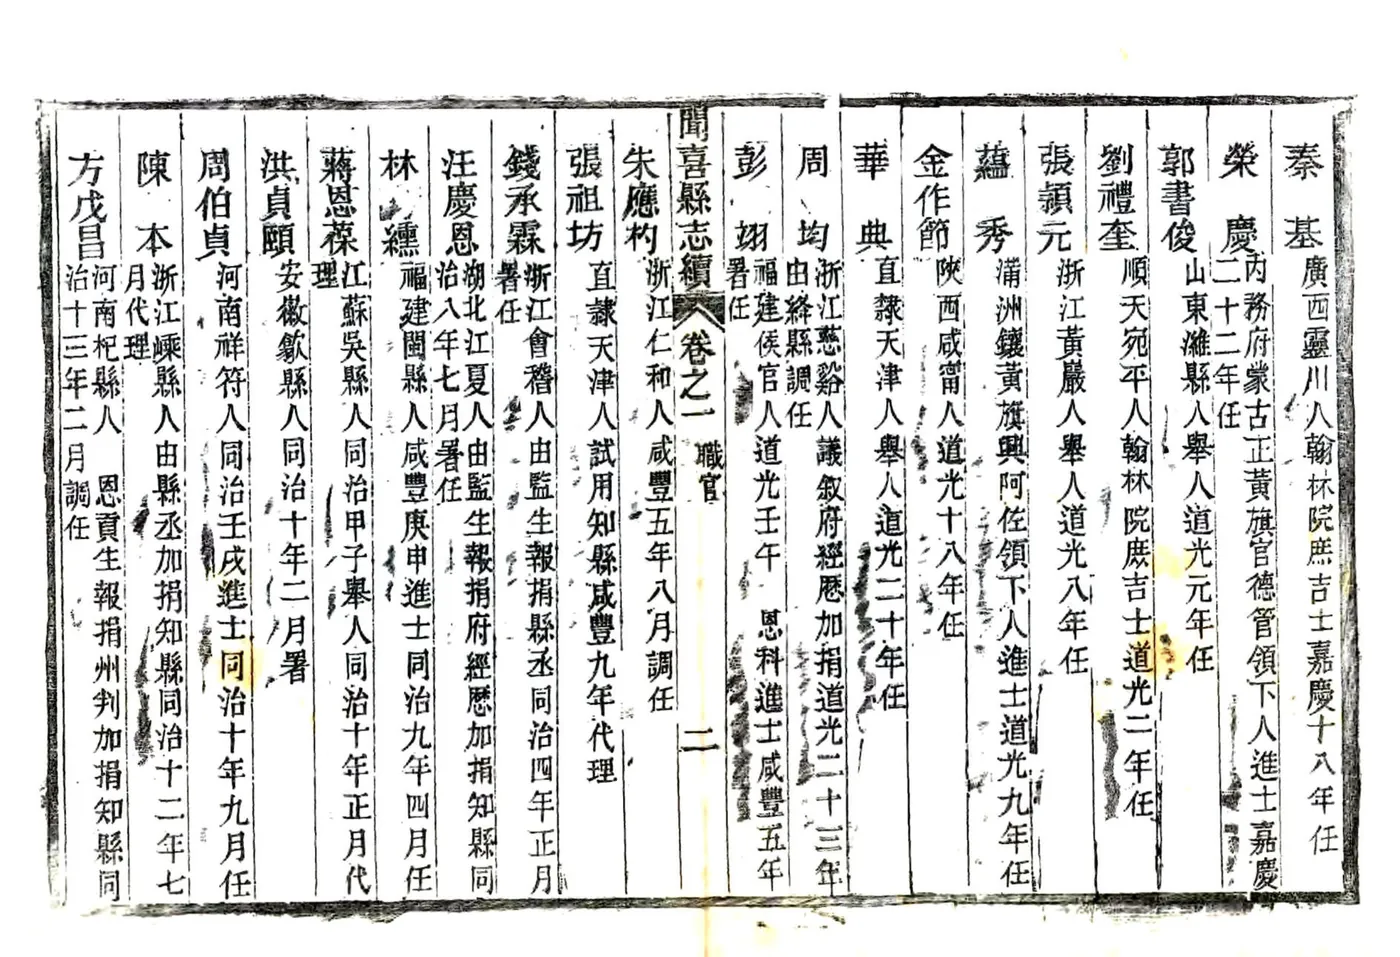 秦基 廣西靈川人翰林院庶吉士嘉慶十八年任
榮慶 內務府蒙古正黃旗官德管領下人進士嘉慶
二十二年任
郭書俊 山東濰縣人舉人道光元年任
劉禮奎 順天宛平人翰林院庶吉士道光二年任
張頴元 浙江黃嚴人舉人道光八年任
蘊秀 滿洲鑲黃旗興阿佐領下人進士道光九年任
金作節 陝西咸甯人道光十八年任
華典 直隸天津人舉人道光二十年任
周均 浙江慈谿人議敘府經歷加捐道光二十三年
由絳縣調任
彭翊 福建侯官人道光壬午 恩科進士咸豐五年
署任
聞喜縣志續 卷之一 職官 二
朱應杓 浙江仁和人咸豐五年八月調任
張祖坊 直隸天津人試用知縣咸豐九年代理
錢承霖 浙江會稽人由監生報捐縣丞同治四年正月
署任
汪慶恩 湖北江夏人由監生報捐府經歷加捐知縣同
治八年七月署任
林纁 福建閩縣人咸豐庚申進士同治九年四月任
蔣恩葆 江蘇吳縣人同治甲子舉人同治十年正月代
理
洪貞頤 安徽歙縣人同治十年二月署
周伯貞 河南祥符人同治壬戌進士同治十年九月任
陳本 浙江嵊縣人由縣丞加捐知縣同治十二年七
月代理
方戊昌 河南杞縣人 恩貢生報捐州判加捐知縣同
治十三年二月調任